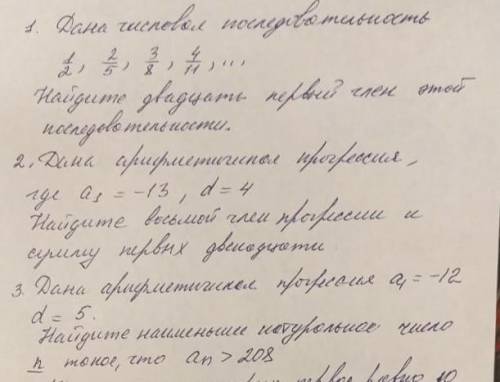 1. Дана числовая последовательность
1/2, 2/5, 3/8, 4/11, ...
Найдите двадцать первый член этой
последовательности.
2. Дана арифметическая прогрессия,
где a₁ = -13, d = 4
Найдите восьмой член прогрессии и
сумму первых двенадцати
3. Дана арифметическая прогрессия a₁ = -12
d = 5.
Найдите наименьшее натуральное число
n такое, что aₙ > 208
первое равно 10